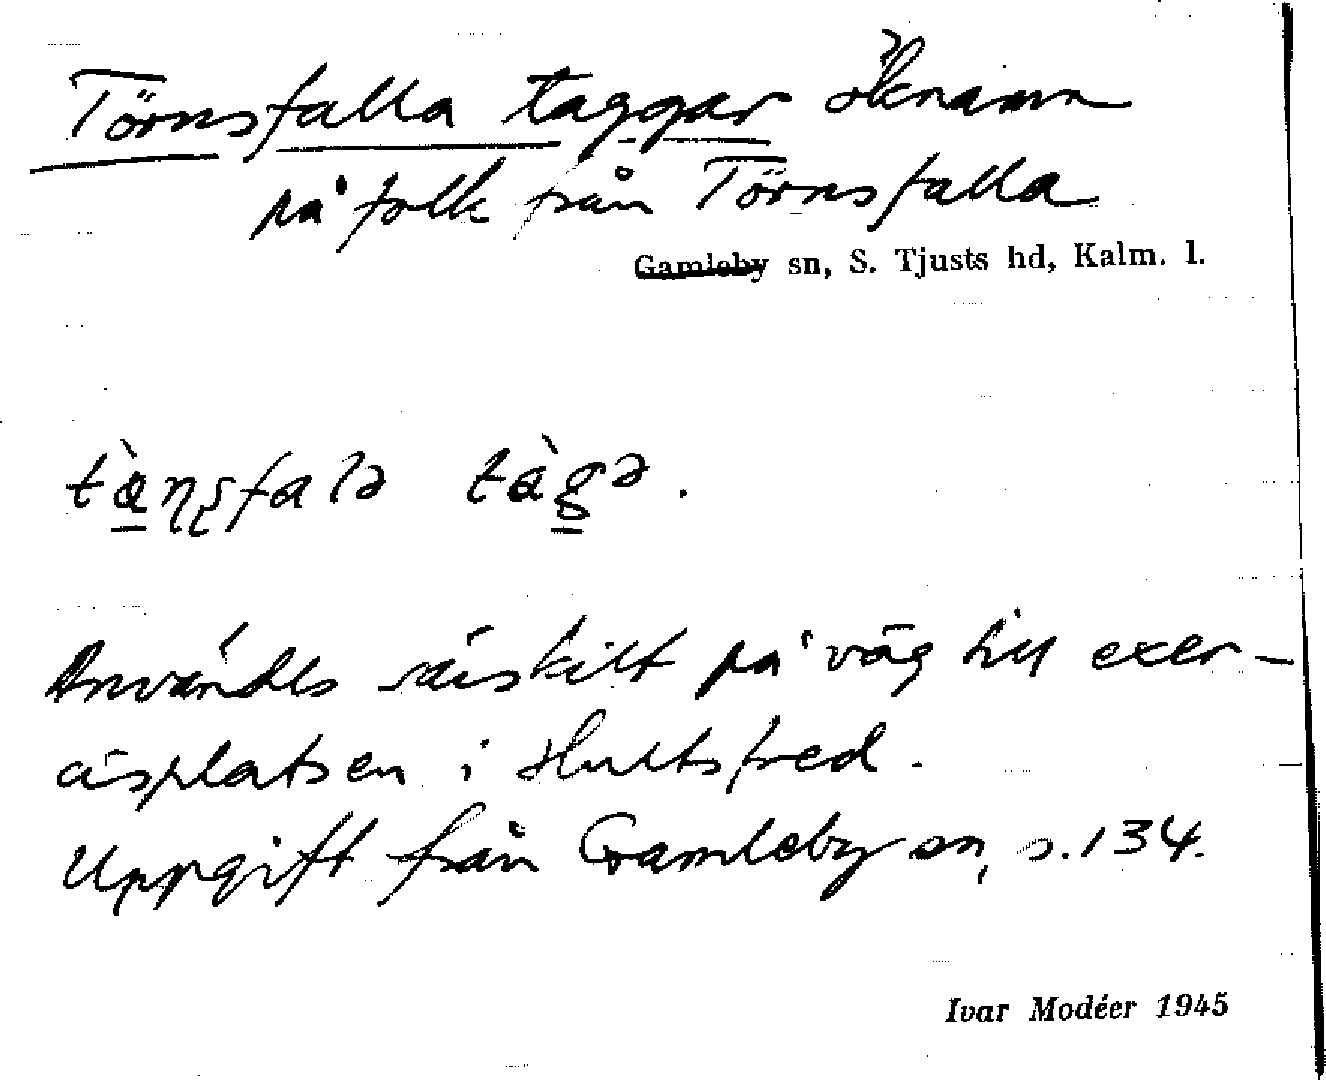 Törnsfalla taggar öknamn
på folk från Törnsfalla
Gamleby sn, S. Tjusts hd, Kalm. l.
Användes särskilt på väg till exer-
cisplatsen i Hultsfred.
Uppgift från Gamleby sn, s. 134.
Ivar Modéer 1945